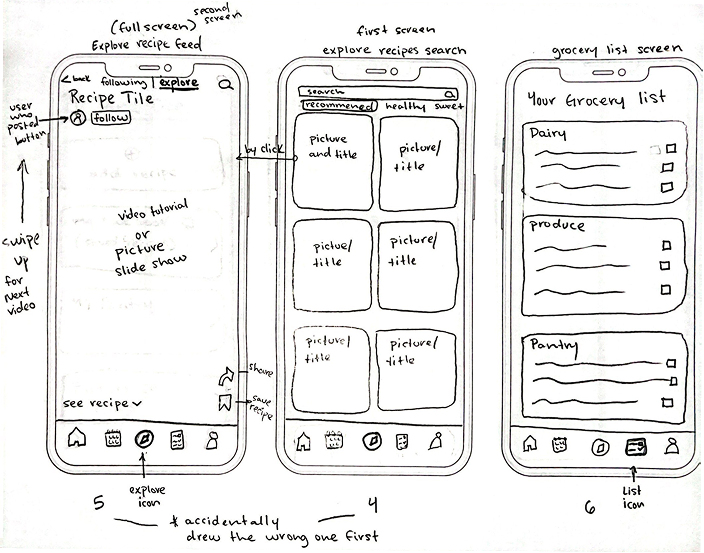 (full screen) second screen
Explore recipe feed
< back following | explore
Recipe Title
user who posted button
follow
video tutorial
or
picture
slide show
swipe
up
for
next
video
share
save recipe
see recipe
explore icon
5
first screen
explore recipes search
search
recommened healthy sweet
by click
picture and title
picture/ title
pictue/ title
picture/ title
picture/ title
picture/ title
4
* accidentally
drew the wrong one first
grocery list screen
Your Grocery list
Dairy
produce
Pantry
List icon
6